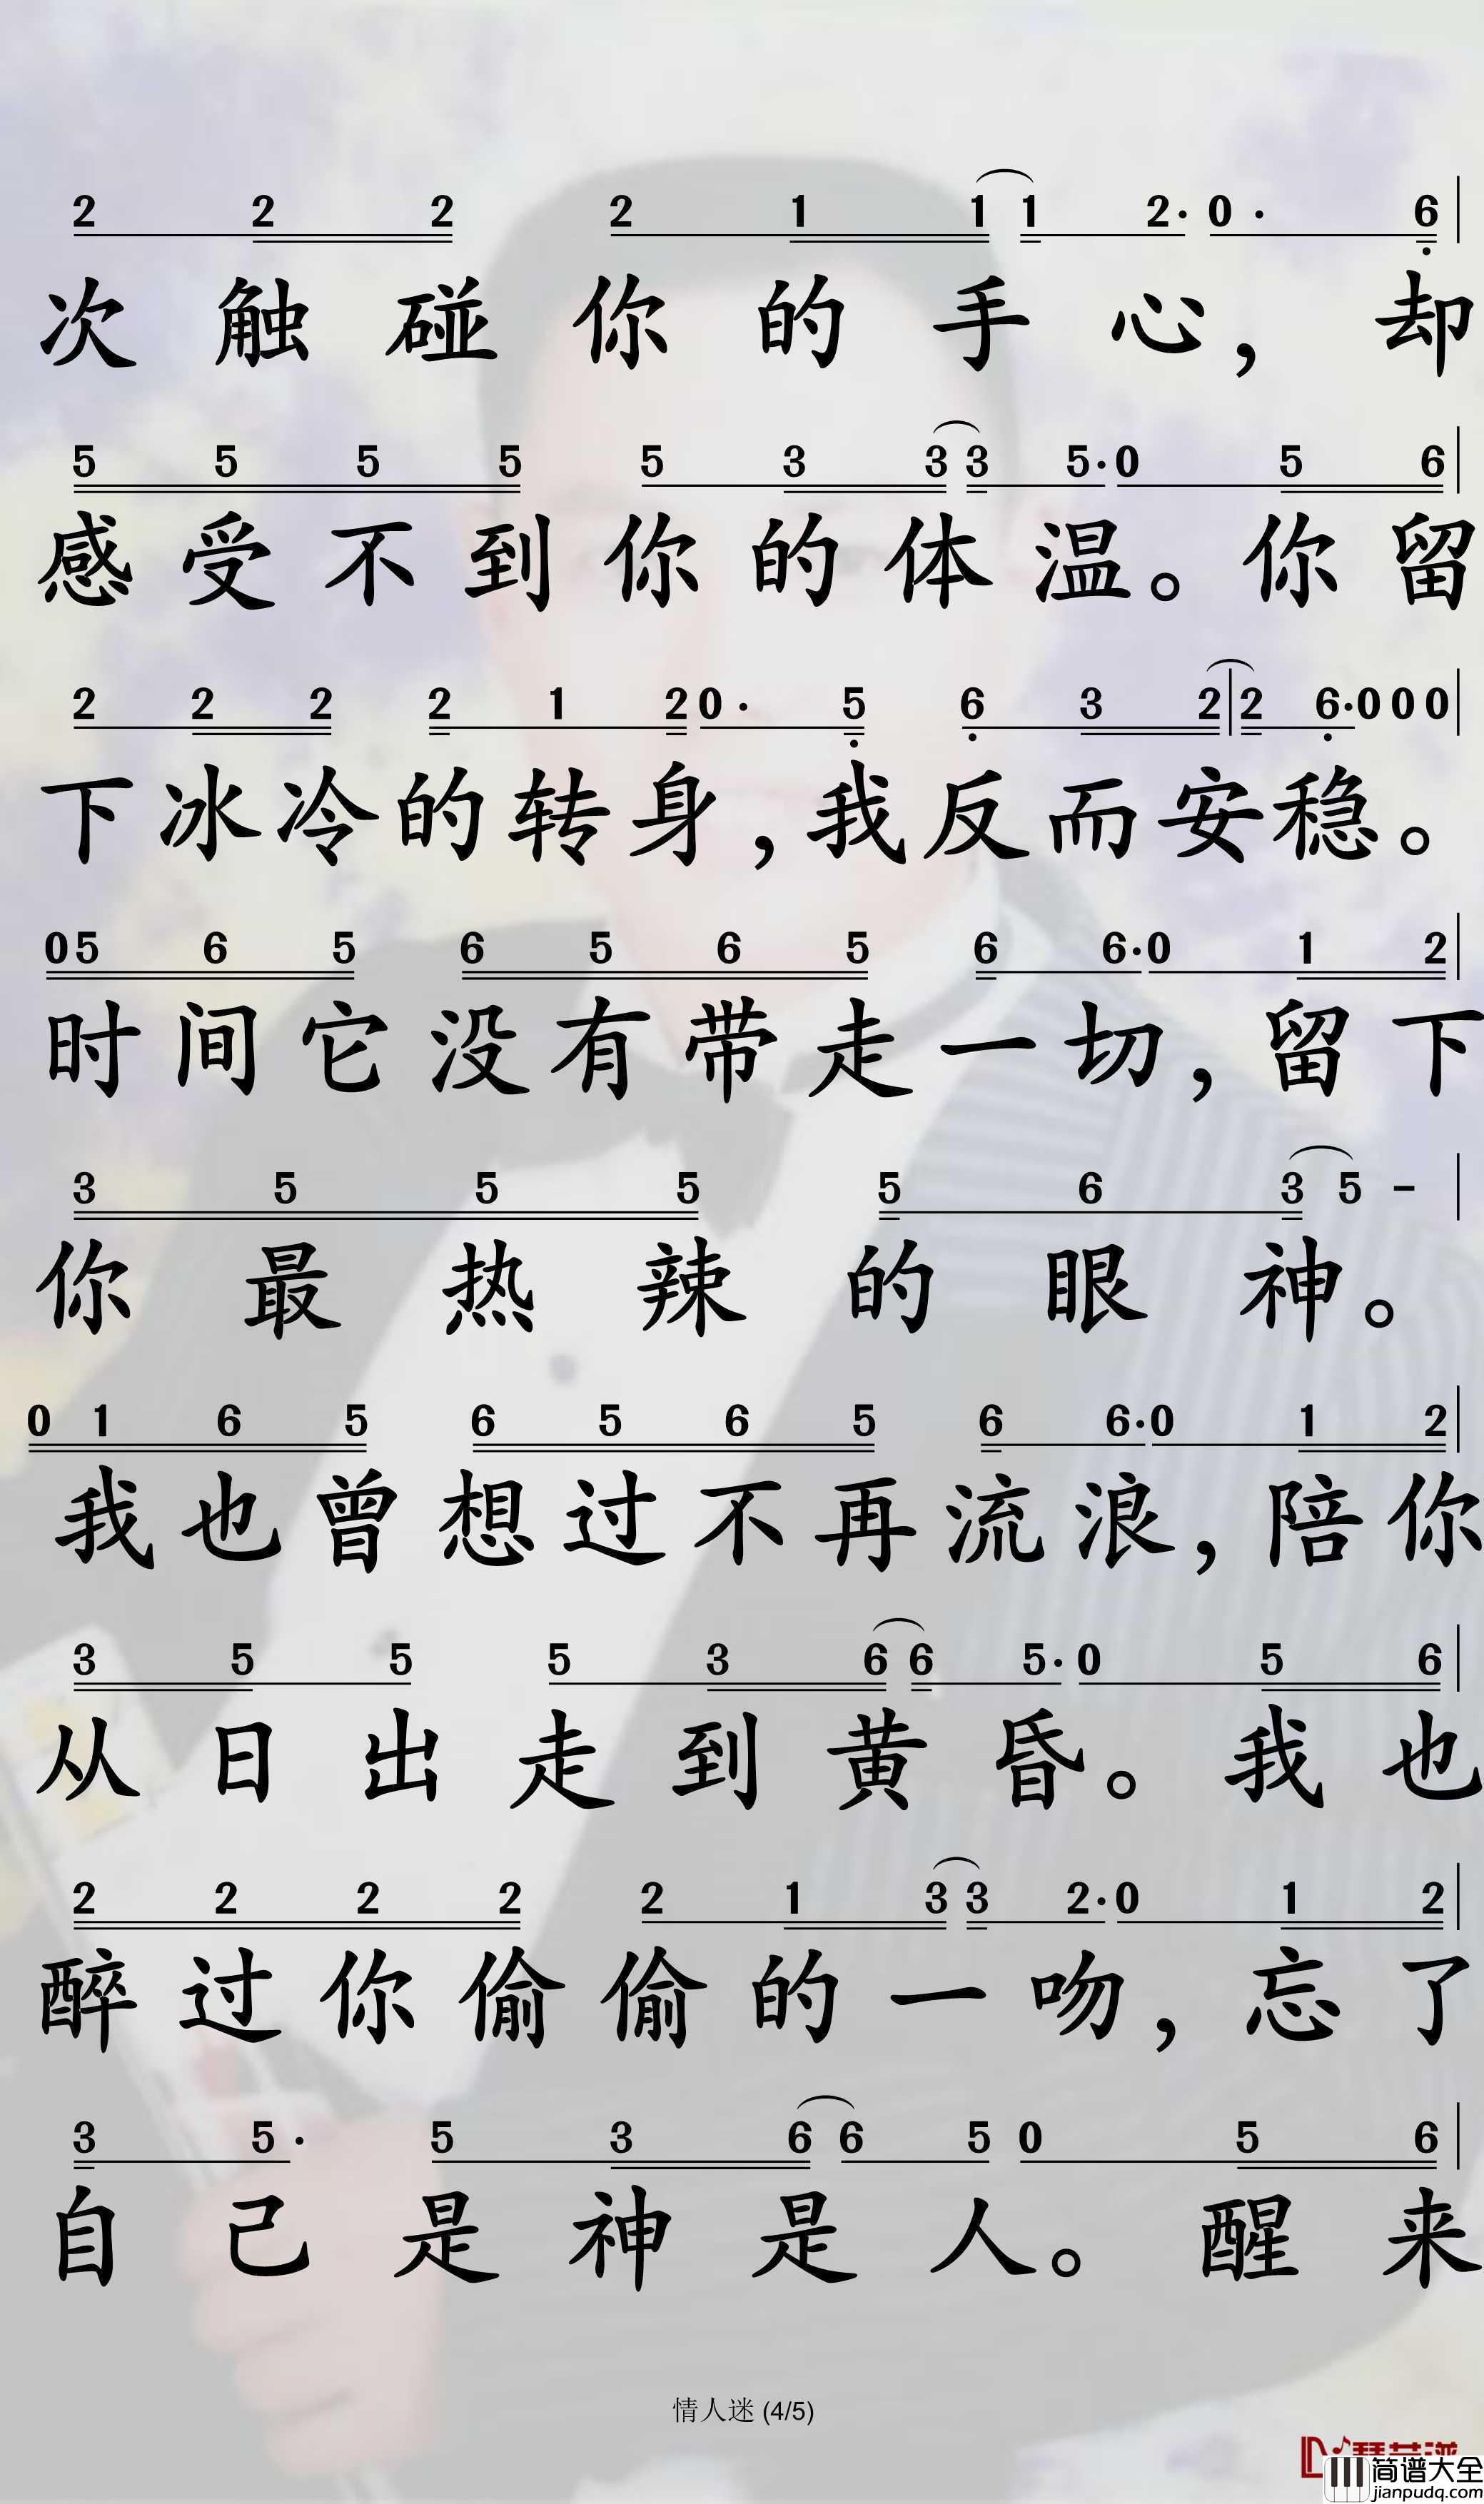 2 2 2 2 1 1 1 2· 0 · 6
次触碰你的手心，却
5 5 5 5 5 3 3 3 5· 0 5 6
感受不到你的体温。你留
2 2 2 2 1 2 0 · 5 6 3 2 2 6· 0 0 0
下冰冷的转身，我反而安稳。
0 5 6 5 6 5 6 5 6 6· 0 1 2
时间它没有带走一切，留下
3 5 5 5 5 6 3 5 -
你最热辣的眼神。
0 1 6 5 6 5 6 5 6 6· 0 1 2
我也曾想过不再流浪，陪你
3 5 5 5 3 6 6 5· 0 5 6
从日出走到黄昏。我也
2 2 2 2 2 1 3 3 2· 0 1 2
醉过你偷偷的一吻，忘了
3 5· 5 3 6 6 5 0 5 6
自己是神是人。醒来
情人迷 (4/5)
简谱大全
jianpudq.com